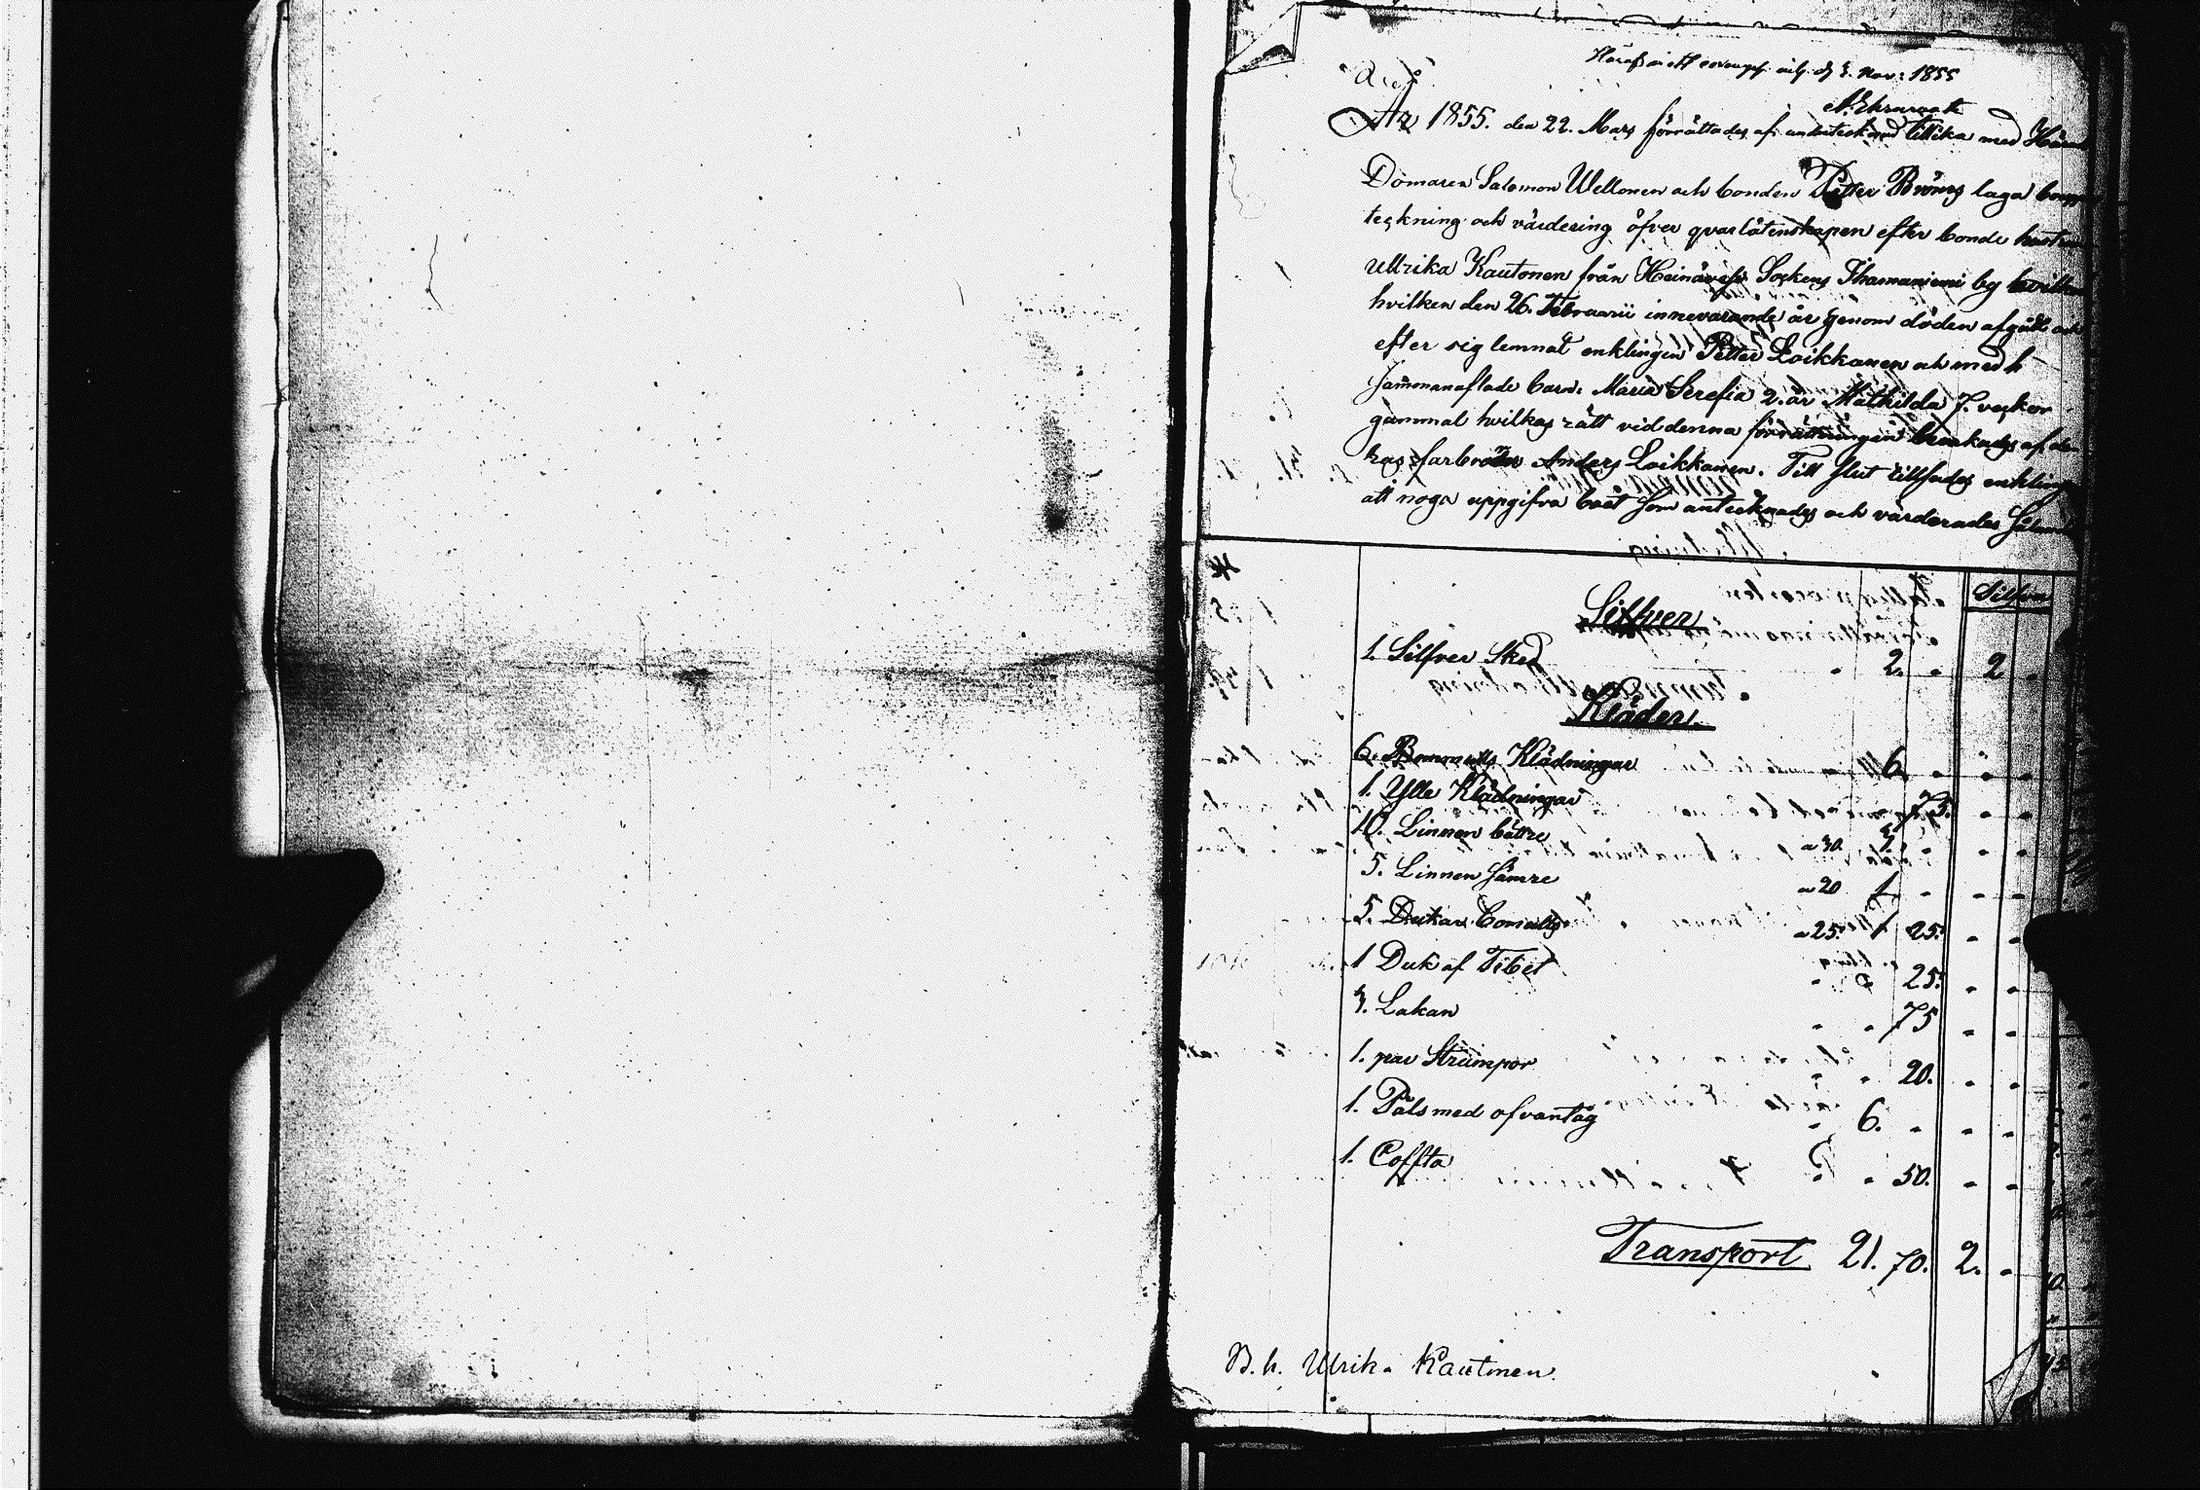 d. 3. Nov: 1855
År 1855. den 22. Mars förrättades af undertecknad tillika med
Domaren Salomon Wellonen och bonden Petter Bröms laga
teckning och värdering öfver qvarlåtenskapen efter bonde
Ullrika Kautonen från Heinävesi Sockens Ihamaniemi by
hvilken den 26. Februarii innevarande år genom döden afgått och
efter sig lemnat enklingen Petter Loikkanen och med h
sammanaflade barn: Maria Serefia 2. år Mathilda 7. veckor
gammal hvilkas rätt vid denna förrättningen bevakades af de
ras farbroder Anders Loikkanen. Till slut tillsades
att noga uppgifva boet som antecknades och värderades
Silfver
Silfver
1. Silfver Sked " 2. " 2 "
Kläder.
6. Bommulls Klädningar 6. " " "
1. Ylle Klädningar 75. " "
10. Linnen bättre a 30. 3. " " "
5. Linnen sämre a 20 1 " " "
5. Dukar Bomulls a 25. 1 25. " "
1 Duk af Tibet " 25. " "
3. Lakan " " 75 " "
1. par Strumpor " " 20. " "
1. Päls med ofvantåg " 6. " " "
1. Coffta " 50. " "
Transport 21. 70. 2. "
B. h. Ulrika Kautonen.